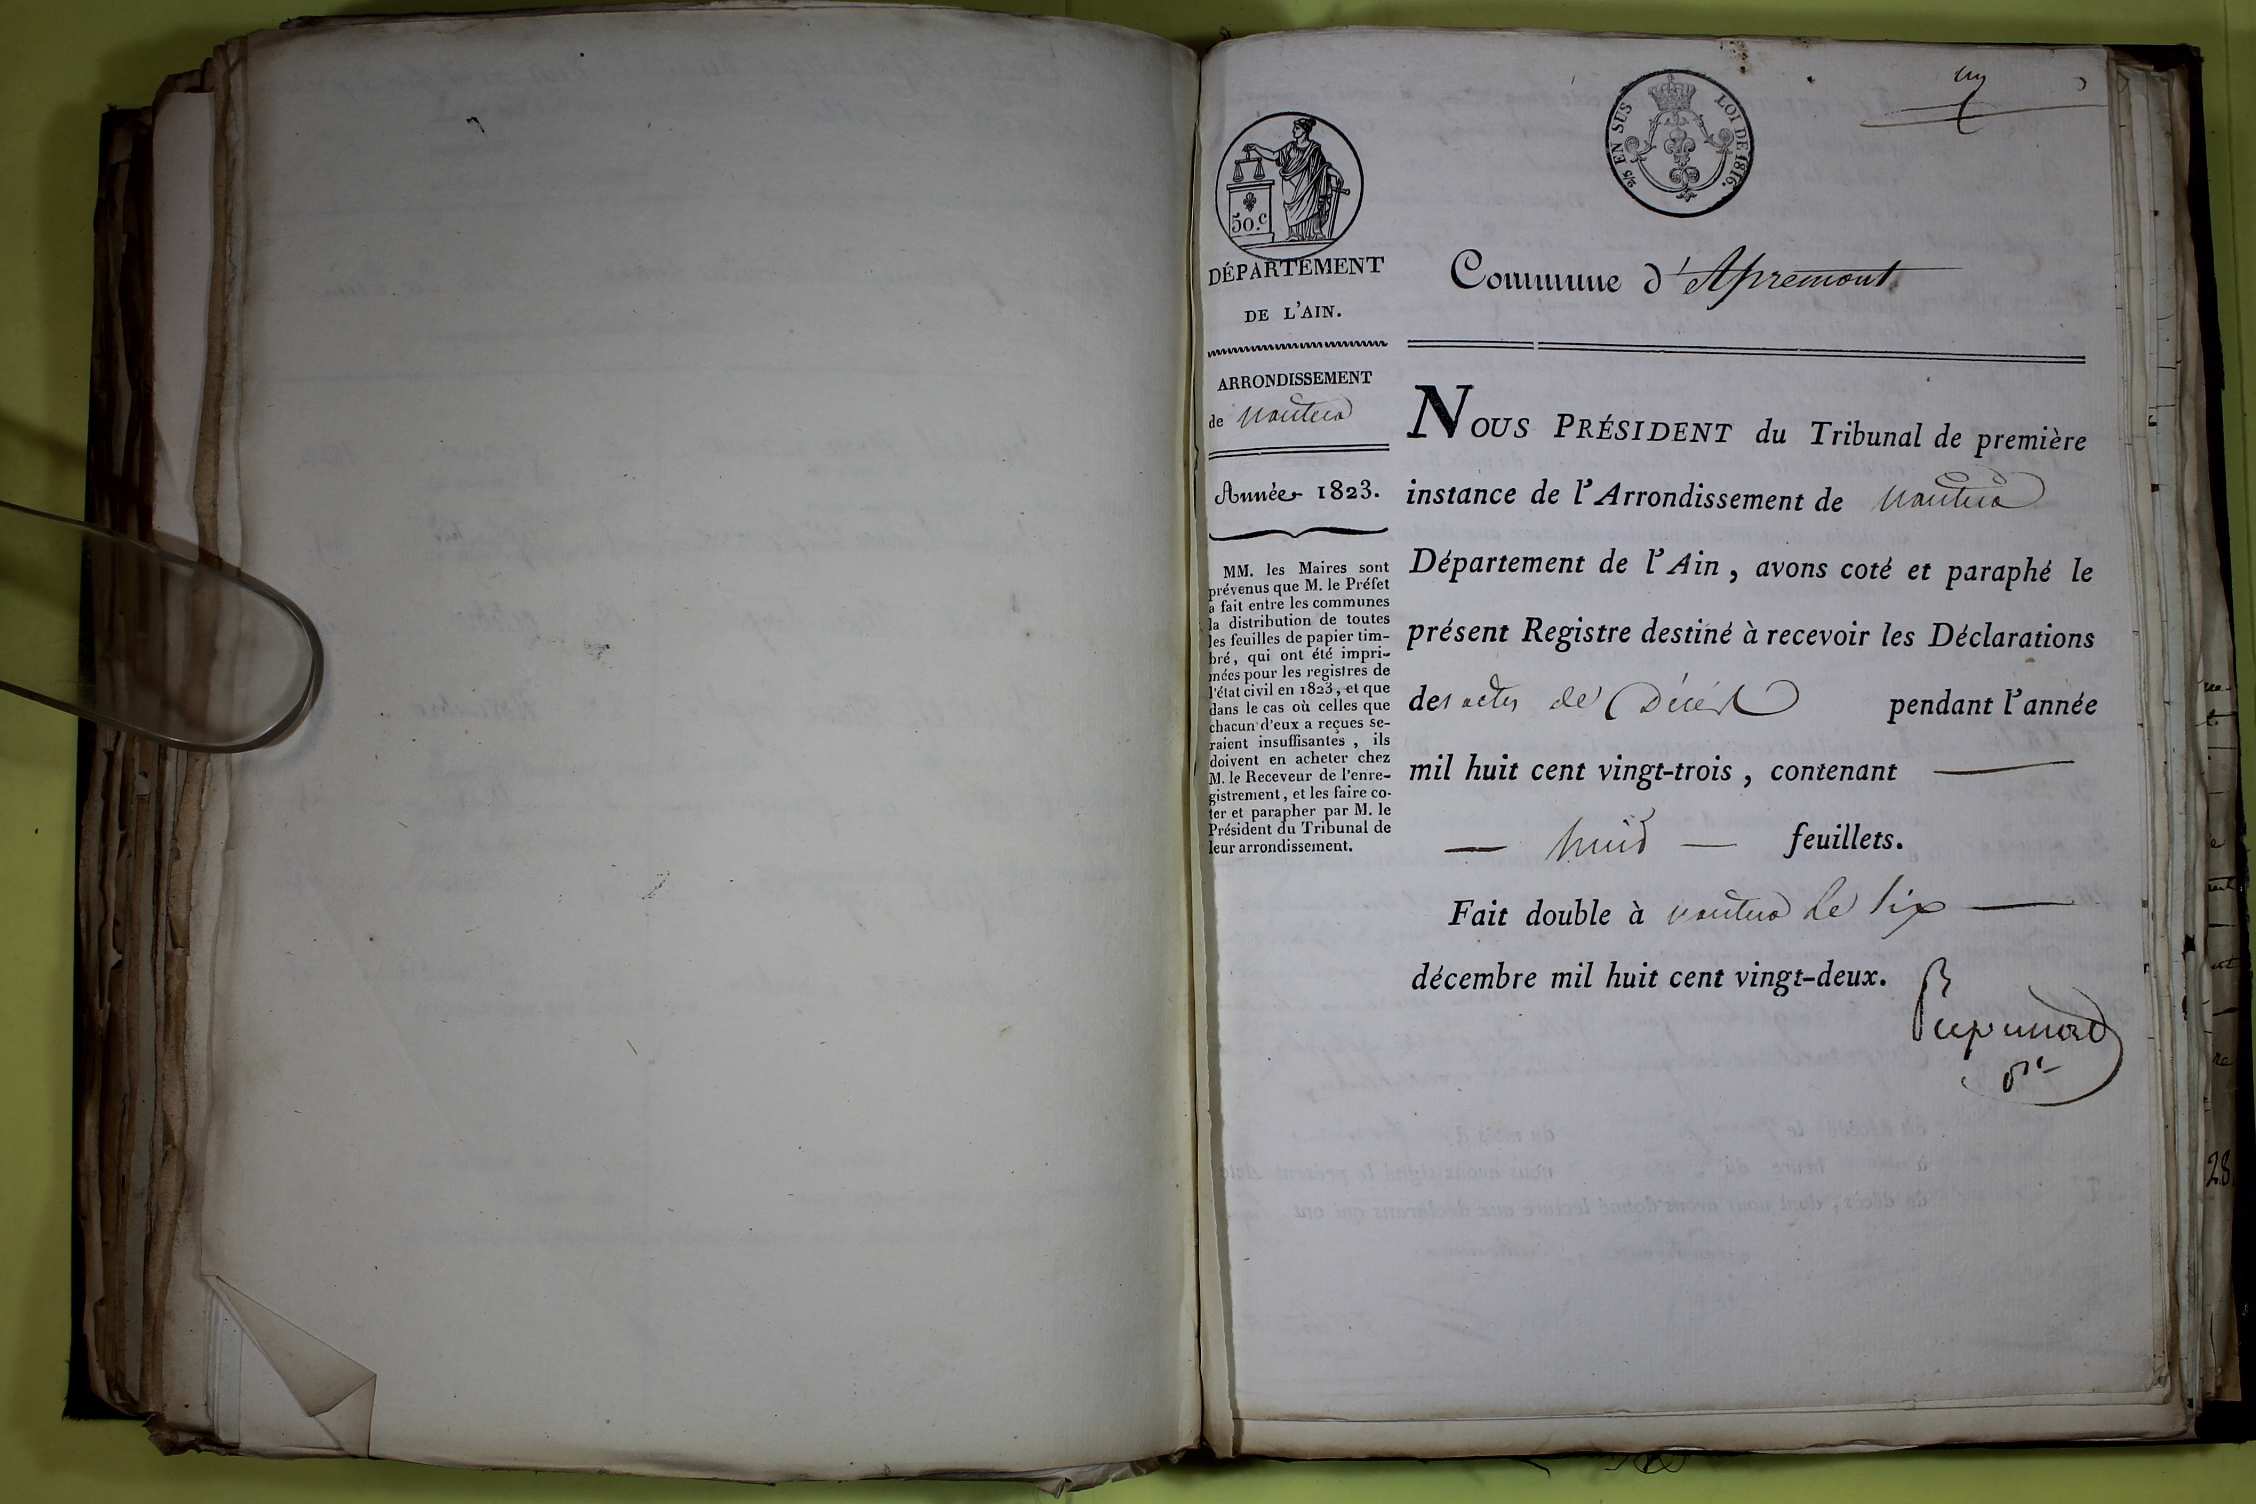 50.c
2/5 EN SUS LOI DE 1816.
un
DÉPARTEMENT
DE L'AIN.
ARRONDISSEMENT
de Nantua
Année 1823.
MM. les Maires sont
prévenus que M. le Préfet
a fait entre les communes
la distribution de toutes
les feuilles de papier tim-
bré, qui ont été impri-
mées pour les registres de
l'état civil en 1823, et que
dans le cas où celles que
chacun d'eux a reçues se-
raient insuffisantes, ils
doivent en acheter chez
M. le Receveur de l'enre-
gistrement, et les faire co-
ter et parapher par M. le
Président du Tribunal de
leur arrondissement.
Commune d'Apremont
NOUS PRÉSIDENT du Tribunal de première
instance de l'Arrondissement de Nantua
Département de l'Ain, avons coté et paraphé le
présent Registre destiné à recevoir les Déclarations
des actes de Décès pendant l'année
mil huit cent vingt-trois, contenant —
— huit — feuillets.
Fait double à nantua le six —
décembre mil huit cent vingt-deux.
28